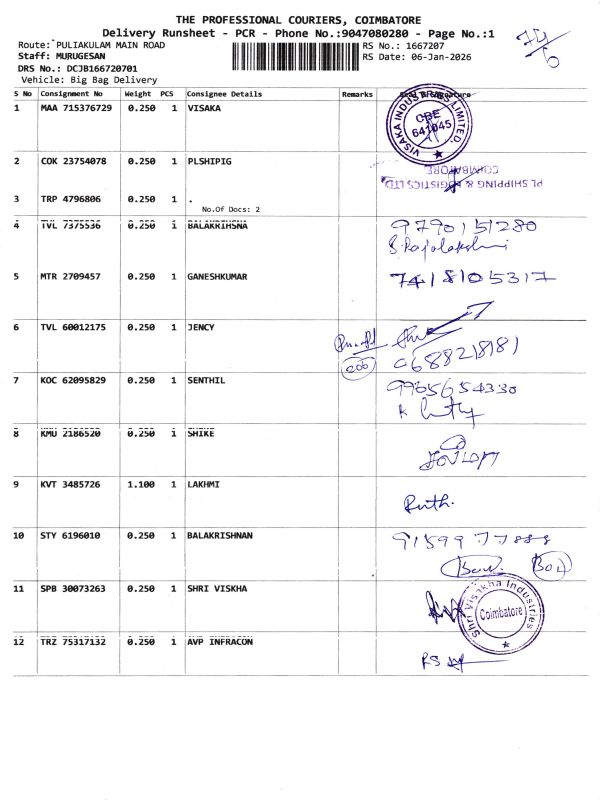 THE PROFESSIONAL COURIERS, COIMBATORE
Delivery Runsheet - PCR - Phone No.:9047080280 - Page No.:1
Route: PULIAKULAM MAIN ROAD RS No.: 1667207
Staff: MURUGESAN RS Date: 06-Jan-2026
DRS No.: DCJB166720701
Vehicle: Big Bag Delivery
S No Consignment No Weight PCS Consignee Details Remarks
1 MAA 715376729 0.250 1 VISAKA
VISAKA INDUSTRIES LIMITED.
CBE
641045
2 COK 23754078 0.250 1 PLSHIPIG
PL SHIPPING & LOGISTICS LTD
COIMBATORE
3 TRP 4796806 0.250 1 .
No.Of Docs: 2
4 TVL 7375536 0.250 1 BALAKRIHSNA 9790151280
S. Rajalakshmi
5 MTR 2709457 0.250 1 GANESHKUMAR 7418105317
6 TVL 60012175 0.250 1 JENCY
200
7 KOC 62095829 0.250 1 SENTHIL
8 KMU 2186520 0.250 1 SHIKE
9 KVT 3485726 1.100 1 LAKHMI
Ruth.
10 STY 6196010 0.250 1 BALAKRISHNAN
11 SPB 30073263 0.250 1 SHRI VISKHA
Shri Visakha Industries
Coimbatore
12 TRZ 75317132 0.250 1 AVP INFRACON
RS